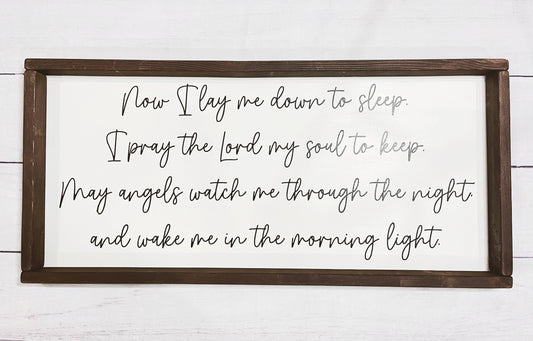 Now I lay me down to sleep.
I pray the Lord my soul to keep.
May angels watch me through the night.
and wake me in the morning light.